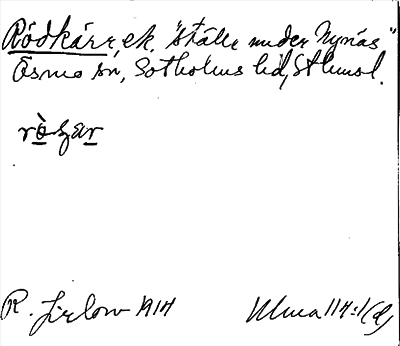 Rödkärr, ek. "ställe under Nynäs"
Ösmo sn, Sotholms hd, Sthmsl.
R. Jirlow 1914
Ulma 114:1(d)